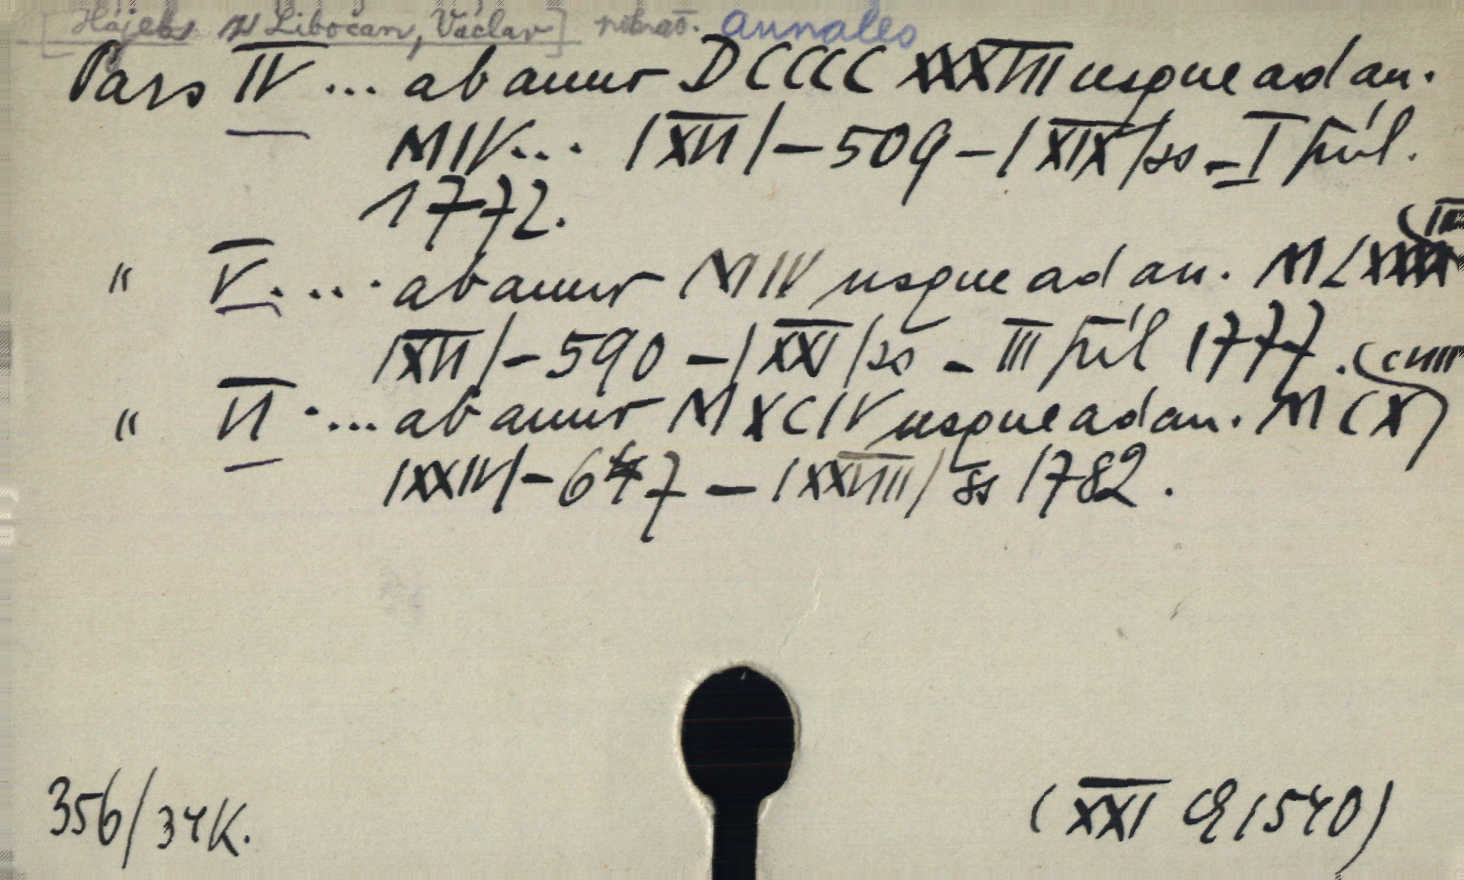 [Hájek z Libočan, Václav] Annales
Pars IV ... ab anno DCCCCXXXVIII usque ad an.
MIV... /XVI/ – 509 – /XIX/ ss – I příl.
1772.
" V.... ab anno MIV usque ad an.
/XVI/ – 590 – /XXI/ ss – III příl 1777.
" VI .... ab anno MXCIV usque ad an.
/XXIV/ – 647 – /XXVIII/ ss 1782.
356/34K.
(XXI E 1540)